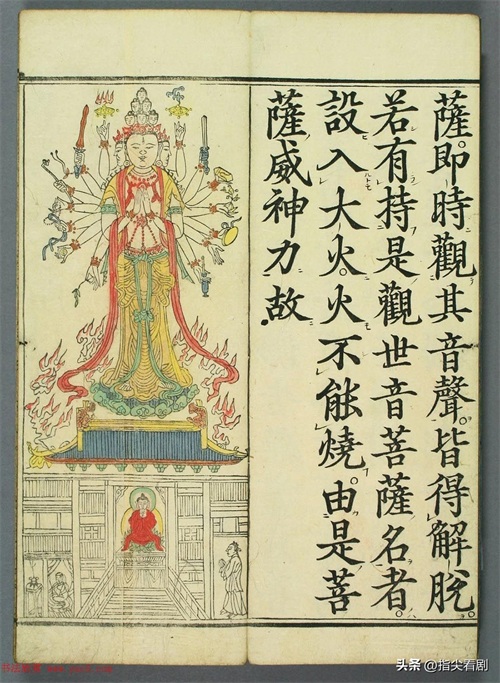 薩即時觀其音聲。皆得解脫。
若有持是觀世音菩薩名者。
設入大火。火不能燒。由是菩
薩威神力故.
头条 @指尖看剧